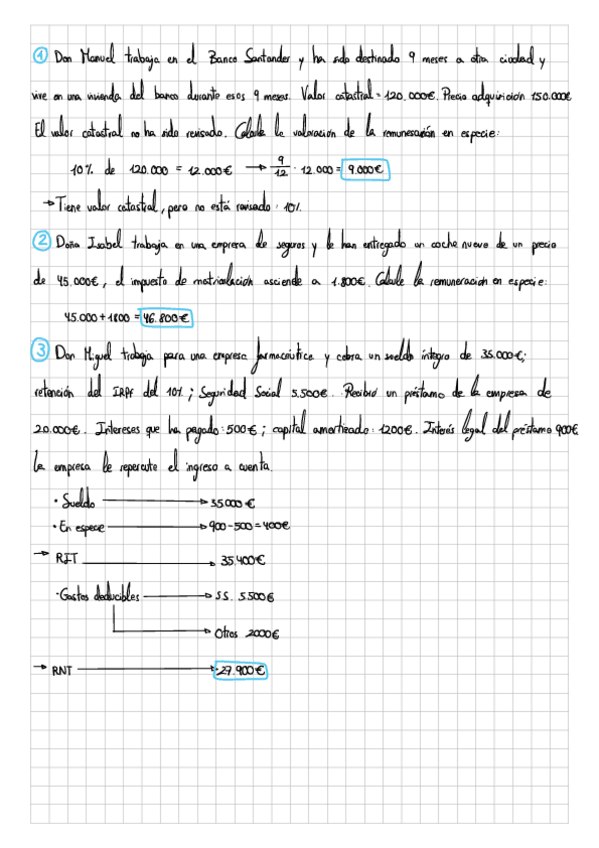 1 Don Manuel trabaja en el Banco Santander y ha sido destinado 9 meses a otra ciudad y
vive en una vivienda del banco durante esos 9 meses. Valor catastral = 120.000€. Precio adquisición 150.000€
El valor catastral no ha sido revisado. Calcule la valoración de la remuneración en especie:
10% de 120.000 = 12.000€ → 9/12 · 12.000 = 9.000€
→ Tiene valor catastral, pero no está revisado: 10%
2 Doña Isabel trabaja en una empresa de seguros y le han entregado un coche nuevo de un precio
de 45.000€, el impuesto de matriculación asciende a 1.800€. Calcule la remuneración en especie:
45.000 + 1800 = 46.800€
3 Don Miguel trabaja para una empresa farmacéutica y cobra un sueldo íntegro de 35.000€;
retención del IRPF del 10%; Seguridad Social 5.500€. Recibió un préstamo de la empresa de
20.000€. Intereses que ha pagado: 500€; capital amortizado: 1200€. Interés legal del préstamo 900€
La empresa le repercute el ingreso a cuenta.
· Sueldo → 35000 €
· En especie → 900 - 500 = 400€
→ RIT → 35.400€
· Gastos deducibles → SS. 5.500€
→ Otros 2000€
→ RNT → 27.900€